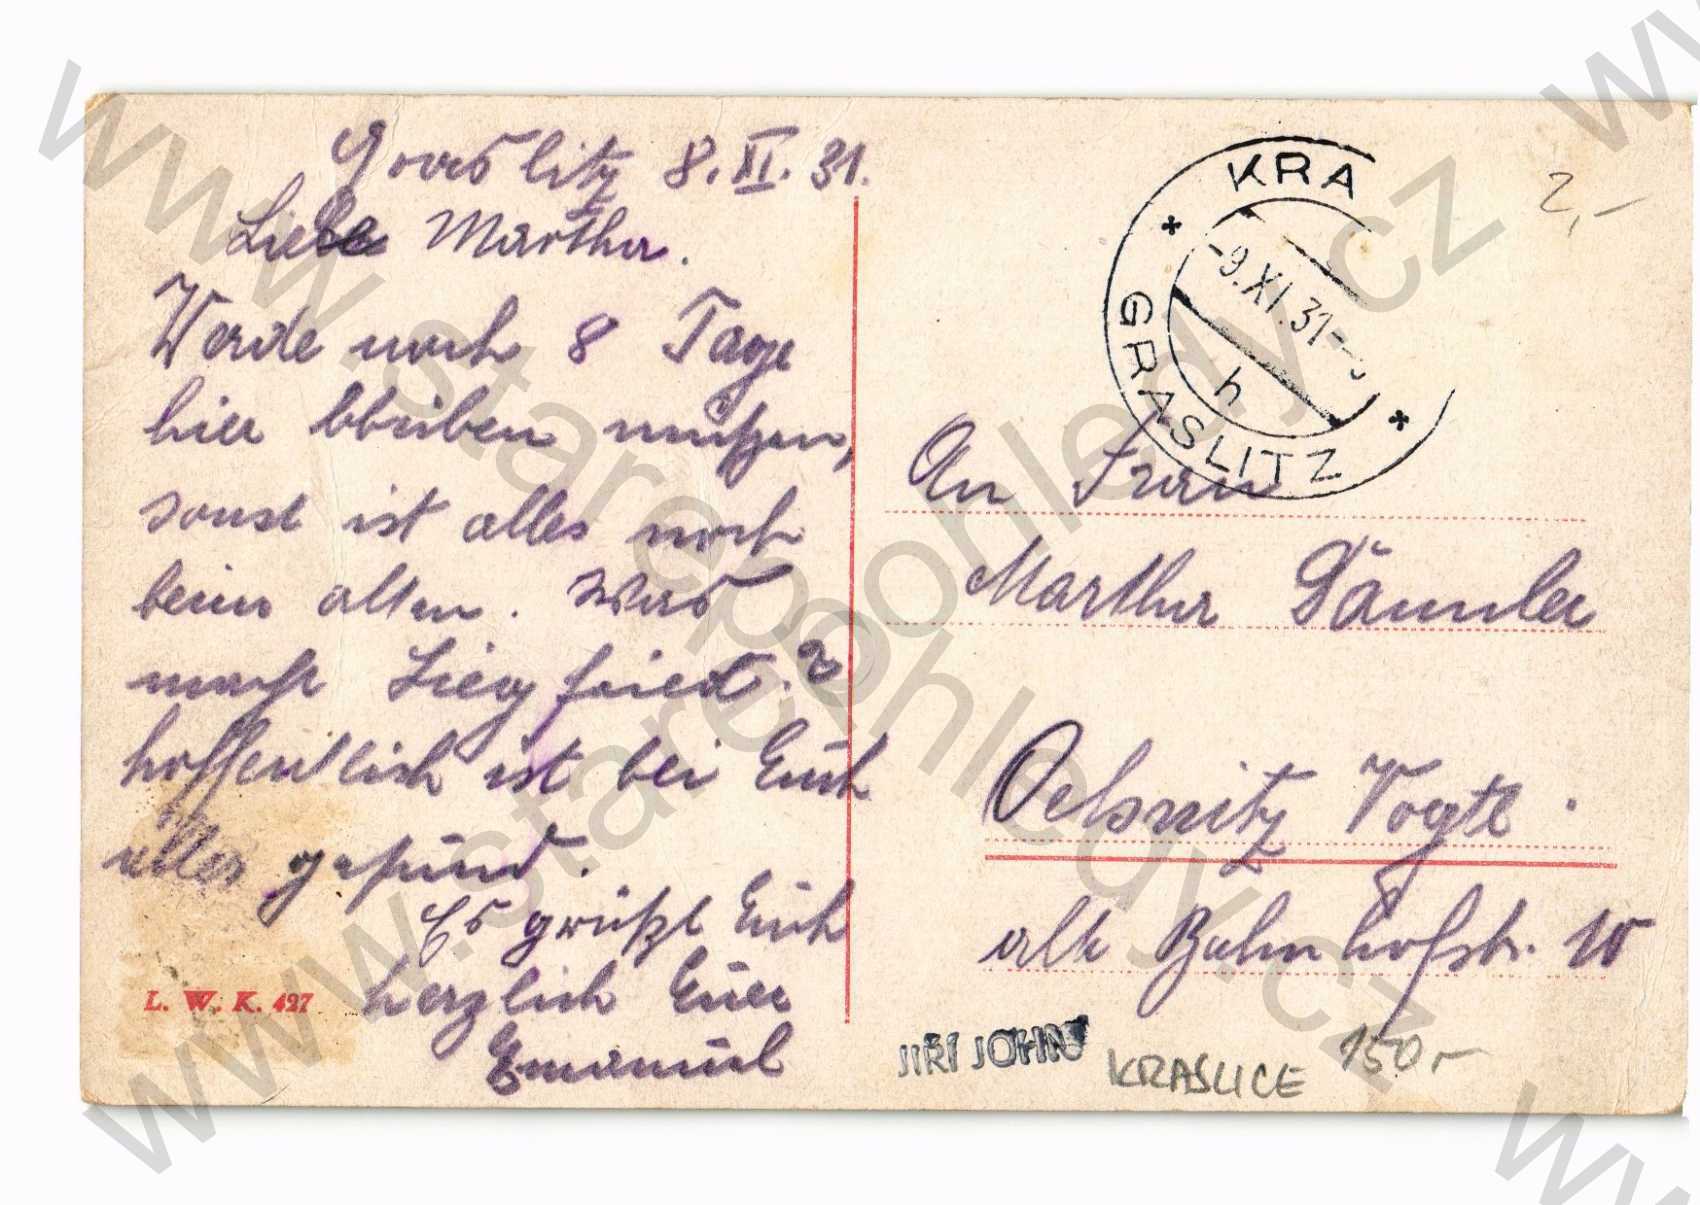 Graslitz 8. XI. 31.
Liebe Martha.
Werde noch 8 Tage
hier bleiben müßen,
sonst ist alles noch
beim alten. Was
macht Siegfried.?
hoffentlich ist bei Euch
alles gesund.
Es grüßt Euch
herzlich Euer
Emanuel
L. W. K. 427
KRA
-9.XI.31-
h
GRASLITZ
2,-
An Frau
Martha
Oelsnitz Vogtl.
alte Bahnhofstr. 10
JIŘÍ JOHN
KRASLICE 150,-
www.starepohledy.cz
www.starepohledy.cz